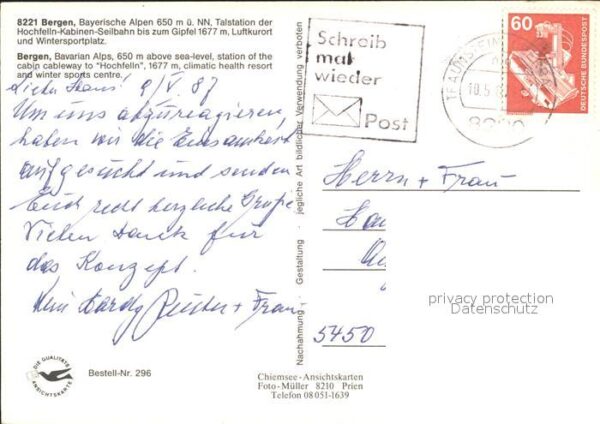 8221 Bergen, Bayerische Alpen 650 m ü. NN, Talstation der
Hochfelln-Kabinen-Seilbahn bis zum Gipfel 1677 m, Luftkurort
und Wintersportplatz.
Bergen, Bavarian Alps, 650 m above sea-level, station of the
cabin cableway to "Hochfelln", 1677 m, climatic health resort
and winter sports centre.
9/V 87
Um uns abzureagieren,
haben wir die Einsamkeit
aufgesucht und senden
Euch recht herzliche Grüße
Vielen Dank für
das Konzept.
+ Frau
DIE QUALITÄTS
ANSICHTSKARTE
Bestell-Nr. 296
Nachahmung, Gestaltung - jegliche Art bildlicher Verwendung verboten
Chiemsee-Ansichtskarten
Foto-Müller 8210 Prien
Telefon 08051-1639
Schreib
mal
wieder
Post
10.5.
60
DEUTSCHE BUNDESPOST
Herrn + Frau
5450
privacy protection
Datenschutz